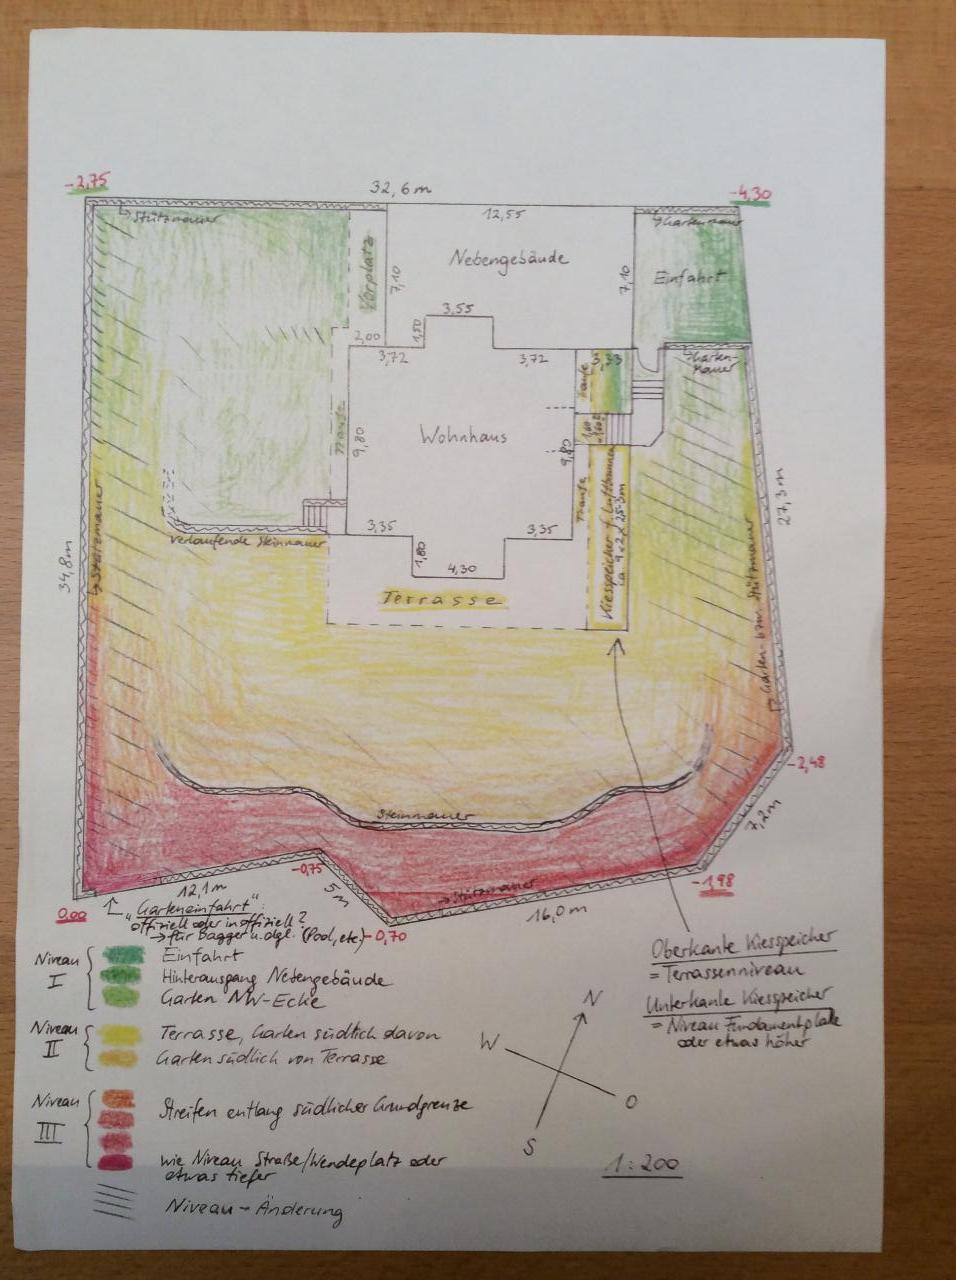 -2,75
32,6 m
-4,30
Stützmauer
12,55
Gartenmauer
Nebengebäude
Vorplatz
7,10
7,10
Einfahrt
3,55
1,50
2,00
3,72
3,72
3,33
Garten-
mauer
Traufe
Traufe
9,80
Wohnhaus
9,80
Traufe
Kiesspeicher f. Luftbrunnen
ca. 9 x 2 x 2,5-3m
3,35
3,35
verlaufende Steinmauer
1,80
4,30
Terrasse
Stützmauer
34,8 m
27,3 m
Garten- bzw. Stützmauer
-2,48
Steinmauer
7,2 m
-0,75
-1,98
12,1 m
5 m
Stützmauer
16,0 m
0,00
"Garteneinfahrt"
offiziell oder inoffiziell?
→ für Bagger u. dgl. (Pool, etc.)
-0,70
Niveau
I
Einfahrt
Hinterausgang Nebengebäude
Garten NW-Ecke
Niveau
II
Terrasse, Garten südlich davon
Garten südlich von Terrasse
Niveau
III
Streifen entlang südlicher Grundgrenze
wie Niveau Straße/Wendeplatz oder
etwas tiefer
Niveau-Änderung
Oberkante Kiesspeicher
= Terrassenniveau
Unterkante Kiesspeicher
= Niveau Fundamentplatte
oder etwas höher
N
W
O
S
1:200